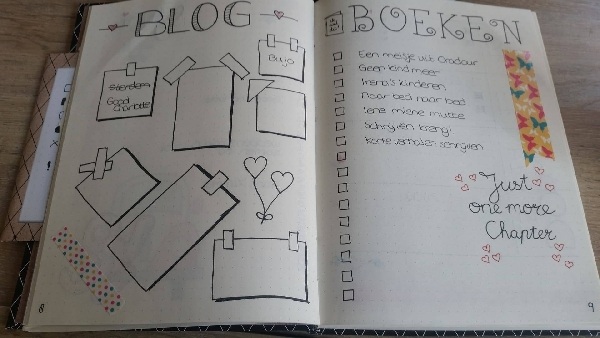 BLOG
Bujo
Good
Charlotte
8
BOEKEN
Een meisje uit Oradour
Geen kind meer
Irena's kinderen
Naar bed naar bad
Iene miene mutte
Schrijven
Korte verhalen schrijven
Just
one more
Chapter
9